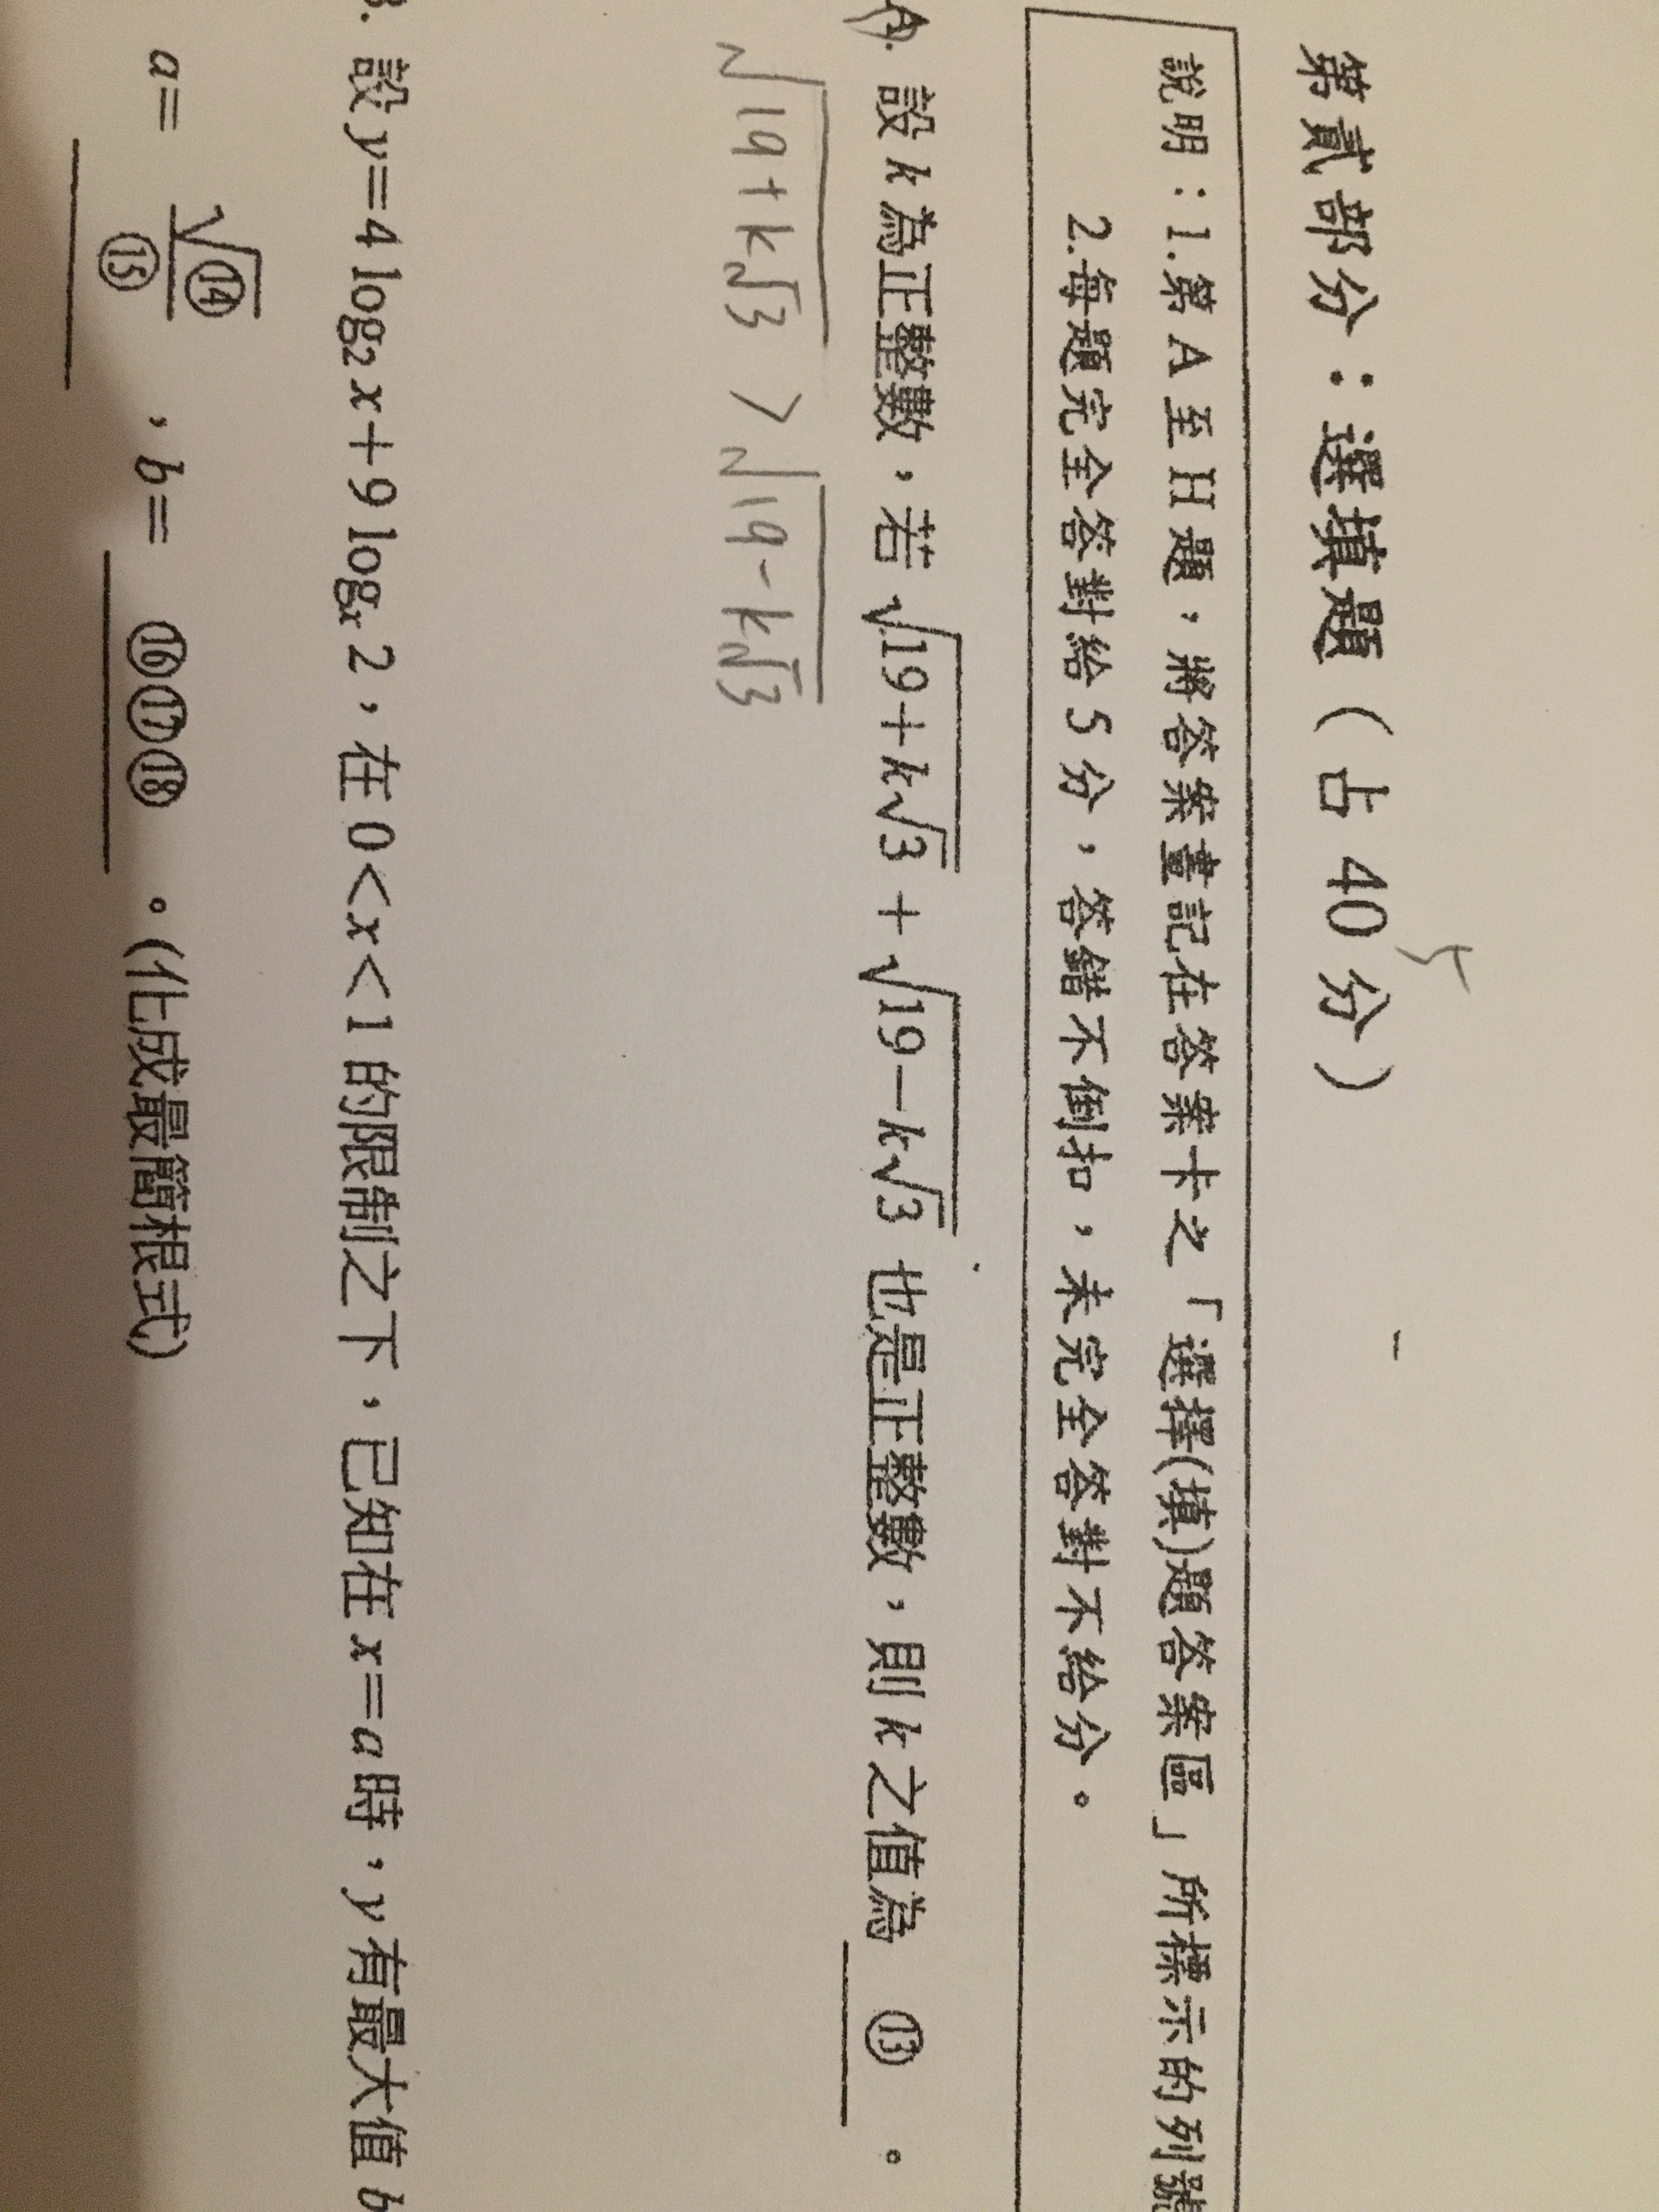 第貳部分：選填題（占 40 分）
說明：1.第 A 至 H 題，將答案畫記在答案卡之「選擇(填)題答案區」所標示的列號
2.每題完全答對給 5 分，答錯不倒扣，未完全答對不給分。
A. 設 k 為正整數，若 √(19+k√3) + √(19−k√3) 也是正整數，則 k 之值為 ⑬ 。
√(19+k√3) > √(19-k√3)
設 y=4 log₂ x+9 logₓ 2，在 0<x<1 的限制之下，已知在 x=a 時，y 有最大值 b
a= √⑭/⑮ ，b= ⑯⑰⑱ 。(化成最簡根式)